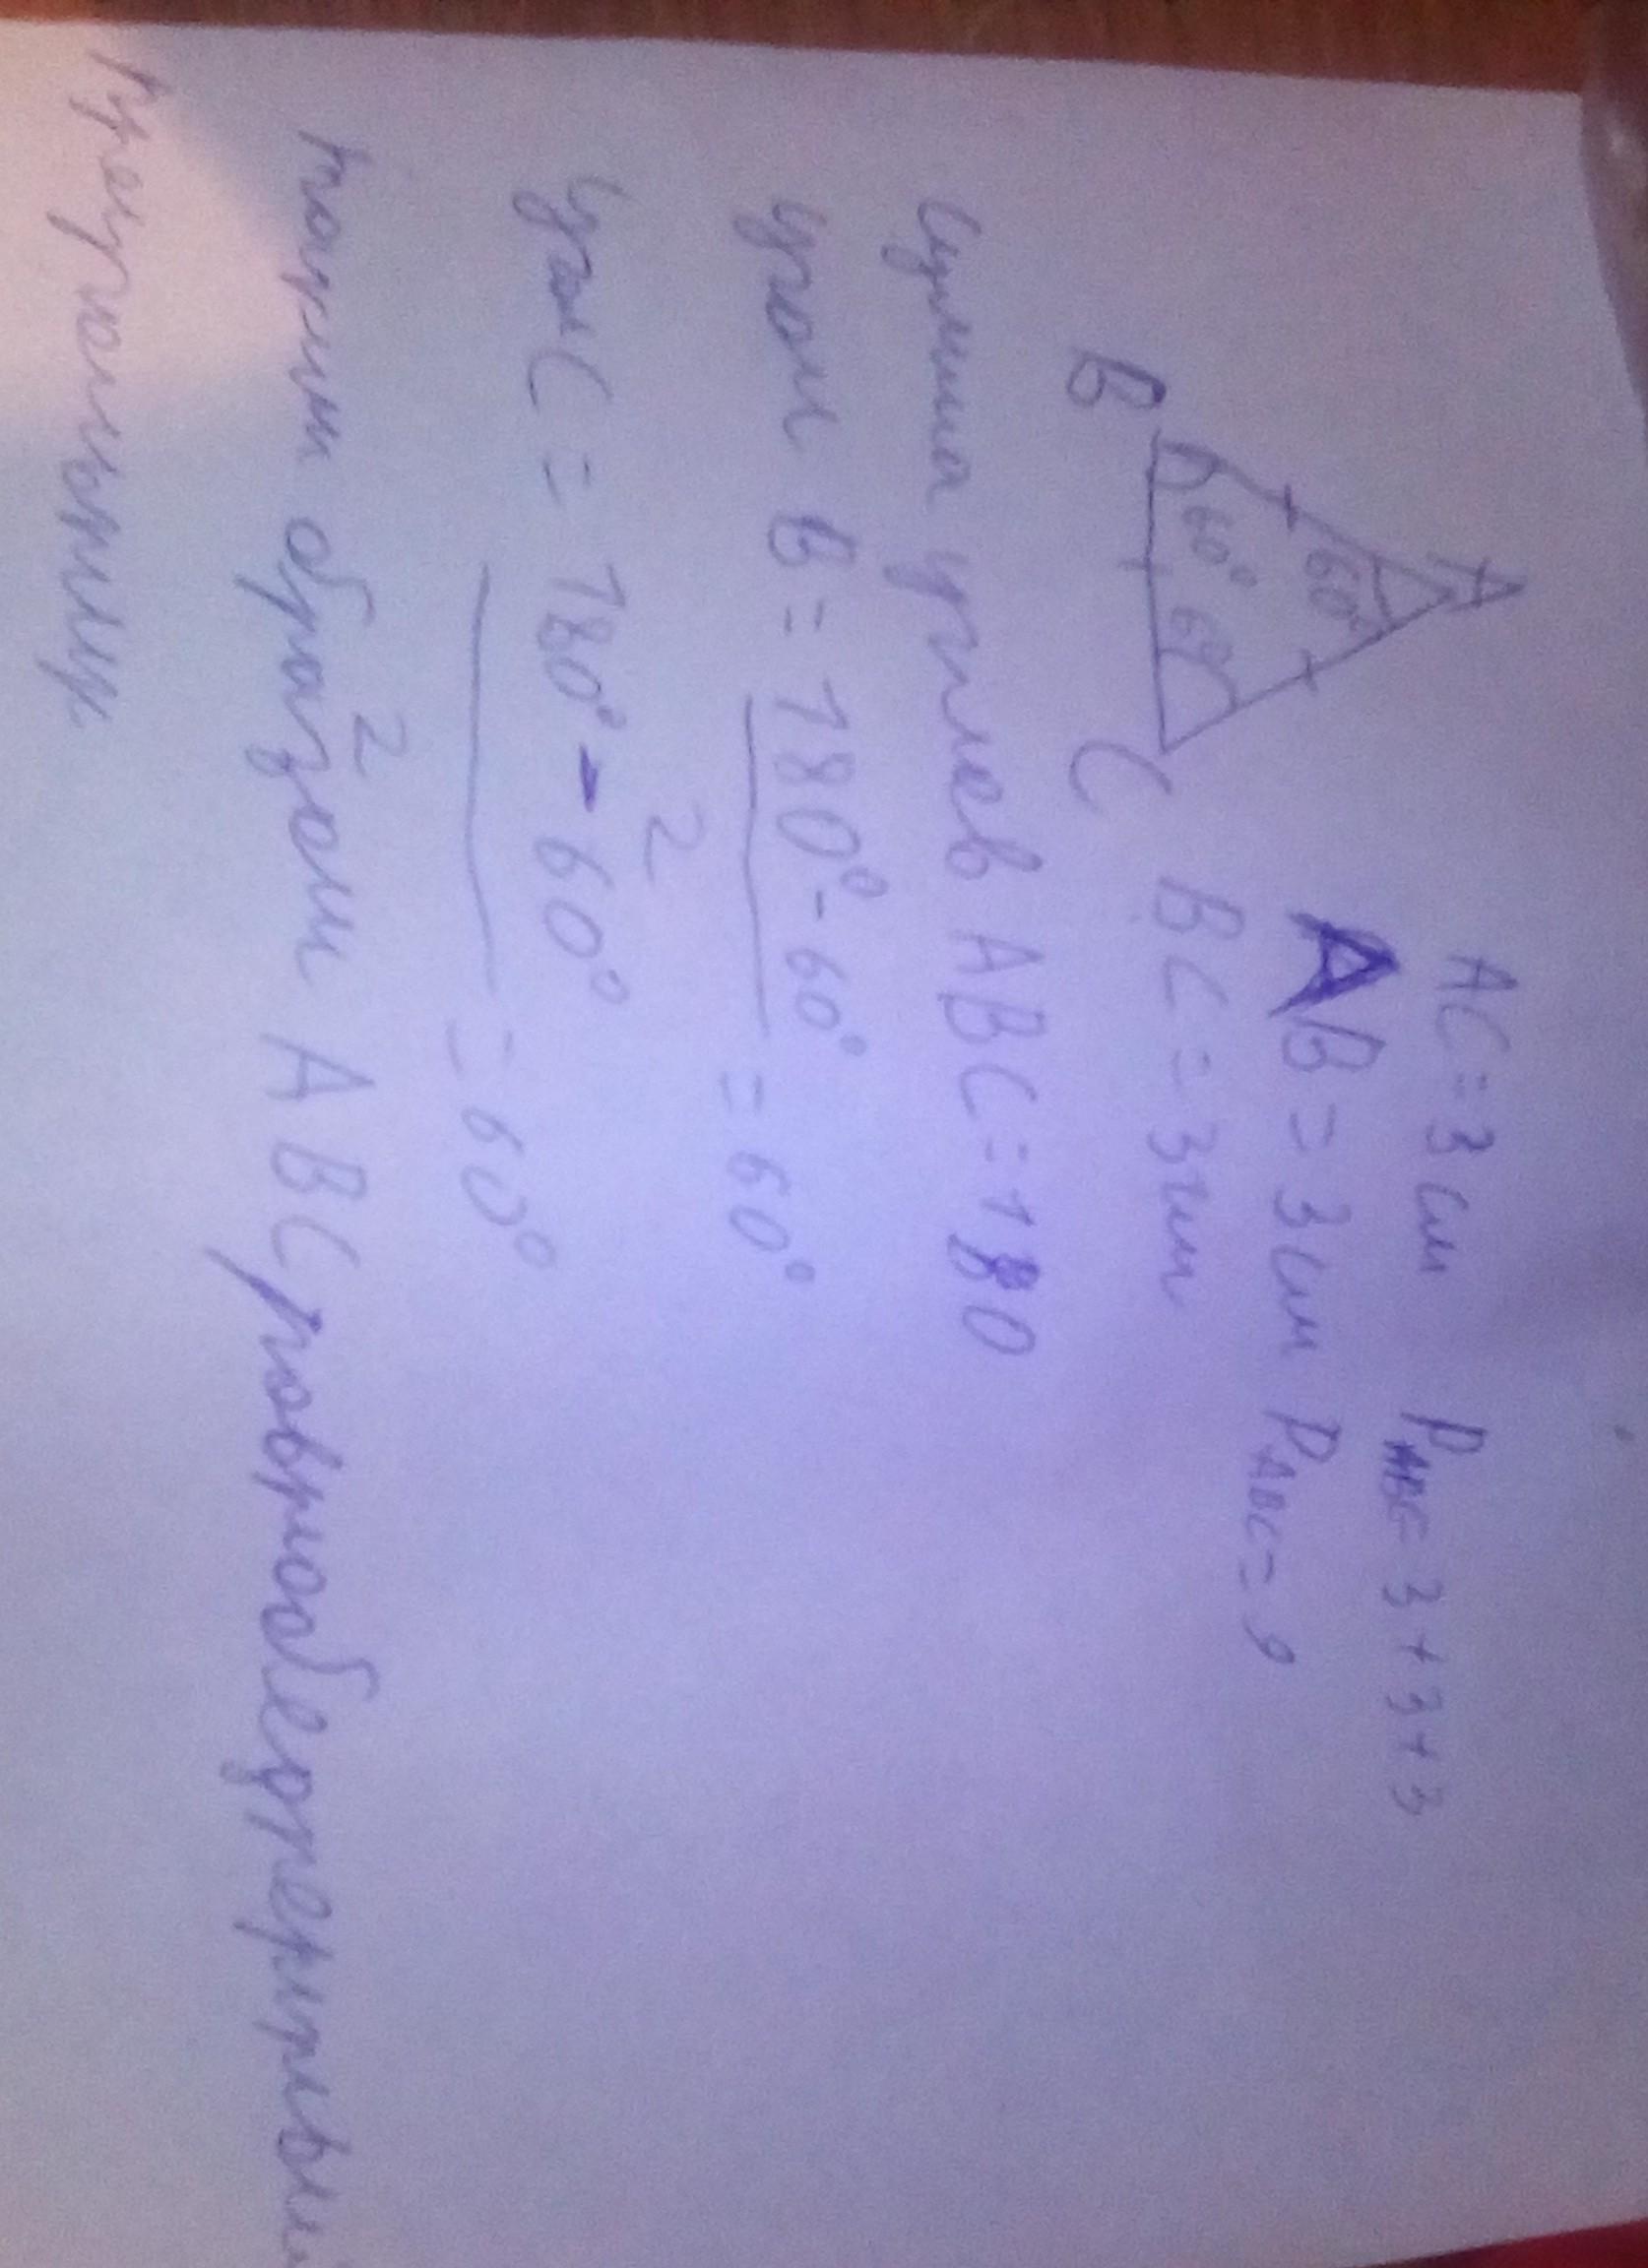 AC = 3 см P ABC = 3 + 3 + 3
AB = 3 см P ABC = 9
BC = 3 см
A
60°
60° 60°
B C
Сумма углев ABC = 180
угол B = 180° - 60° = 60°
2
угол C = 180° - 60° = 60°
2
таким образом ABC
треугольник